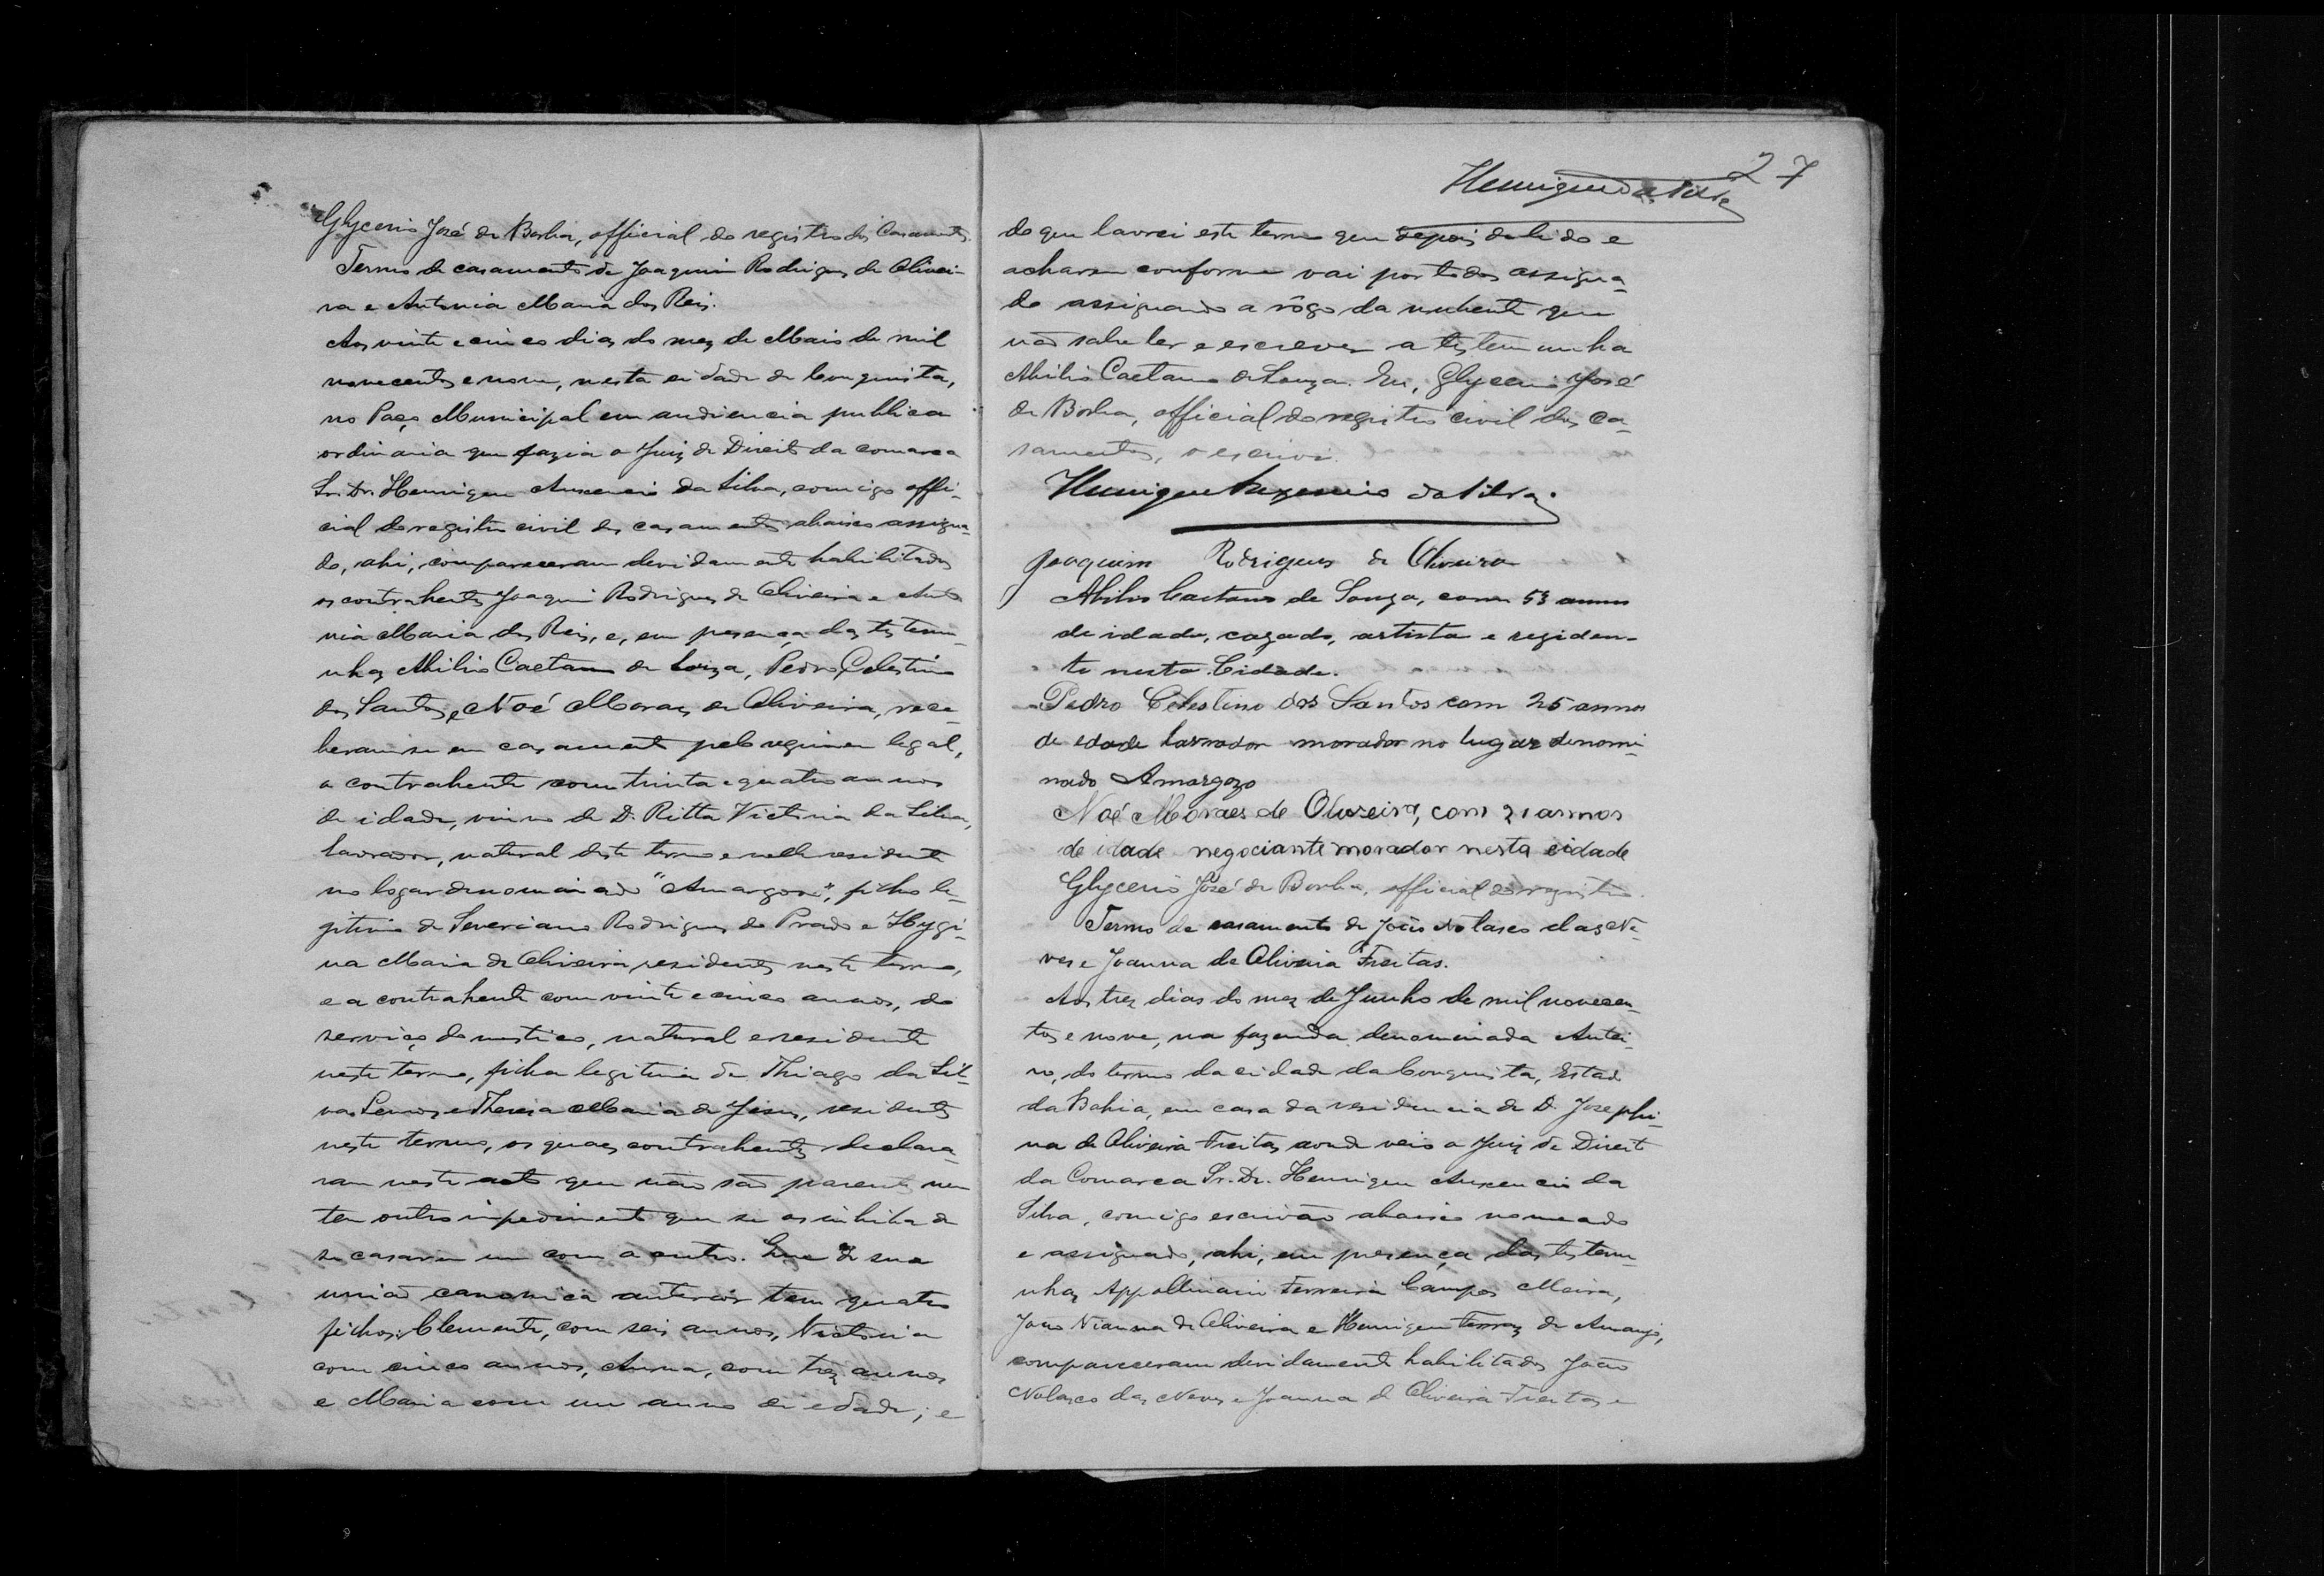 Glycerio José da Borba, official do registro dos Casamentos.
Termo de casamento de Joaquim Rodrigues de Olivei-
ra e Antonia Maria dos Reis.
Aos vinte e cinco dias do mez de Maio de mil
novecentos e nove, nesta cidade de Conquista,
no Paço Municipal em audiencia publica
ordinaria que fazia o Juiz de Direito da comarca
Sr. Dr. Henrique Auxencio da Silva, comigo offi-
cial do registro civil dos casamentos abaixo assigna-
do, ahi, compareceram devidamente habilitados
os contrahentes Joaquim Rodrigues de Oliveira e Anto
nia Maria dos Reis, e, em presença das testemu-
nhas Abilio Caetano de Souza, Pedro Celestino
dos Santos, e Noé Moraes de Oliveira, rece-
beram-se em casamento pelo regimen legal,
o contrahente com trinta e quatro annos
de idade, viuvo de D. Ritta Victoria da Silva,
lavrador, natural deste termo e nelle residente
no logar denominado "Amargoso", filho le-
gitimo de Severiano Rodrigues do Prado e Hygi-
na Maria de Oliveira, residentes neste termo,
e a contrahente com vinte e cinco annos, do
serviço domestico, natural e residente
neste termo, filha legitima de Thiago da Sil-
va Lemos e Thereza Maria de Jesus, residentes
neste termo, os quaes contrahentes declara-
ram neste acto que não são parentes nem
tem outro impedimento que se os inhiba de
se casarem um com o outro. Que de sua
união canonica anterior tem quatro
filhos: Clemente, com seis annos, Victoria
com cinco annos, Anna, com trez annos
e Maria com um anno de edade; e
27
Henrique da Silva
do que lavrei este termo que depois de lido e
acharem conforme vai por todos assigna-
do assignando a rôgo da nubente que
não sabe ler e escrever a testemunha
Abilio Caetano de Souza. Eu, Glycerio José
da Borba, official do registro civil dos ca-
samentos, o escrivi.
Henrique Auxencio da Silva.
Joaquim Rodrigues de Oliveira
Abilio Caetano de Souza, com 53 annos
de idade, cazado, artista e reziden-
te nesta Cidade.
Pedro Celestino dos Santos com 25 annos
de edade Lavrador morador no lugar denomi-
nado Amargozo
Noé Moraes de Oliveira, com 21 annos
de idade negociante morador nesta cidade
Glycerio José da Borba, official do registro.
Termo de casamento de João Nolasco das Ne-
ves e Joanna de Oliveira Freitas.
Aos trez dias do mez de Junho de mil novecen-
tos e nove, na fazenda denominada
do termo da cidade da Conquista, Estado
da Bahia, em casa da residencia de D. Josephi-
na de Oliveira Freitas, aonde veio o Juiz de Direito
da Comarca Sr. Dr. Henrique Auxencio da
Silva, comigo escrivão abaixo nomeado
e assignado, ahi, em presença das testemu-
nhas Appollinario Ferreira Campos Meira,
João Vianna de Oliveira e Henrique Ferraz de Araujo,
compareceram devidamente habilitados João
Nolasco das Neves e Joanna de Oliveira Freitas e